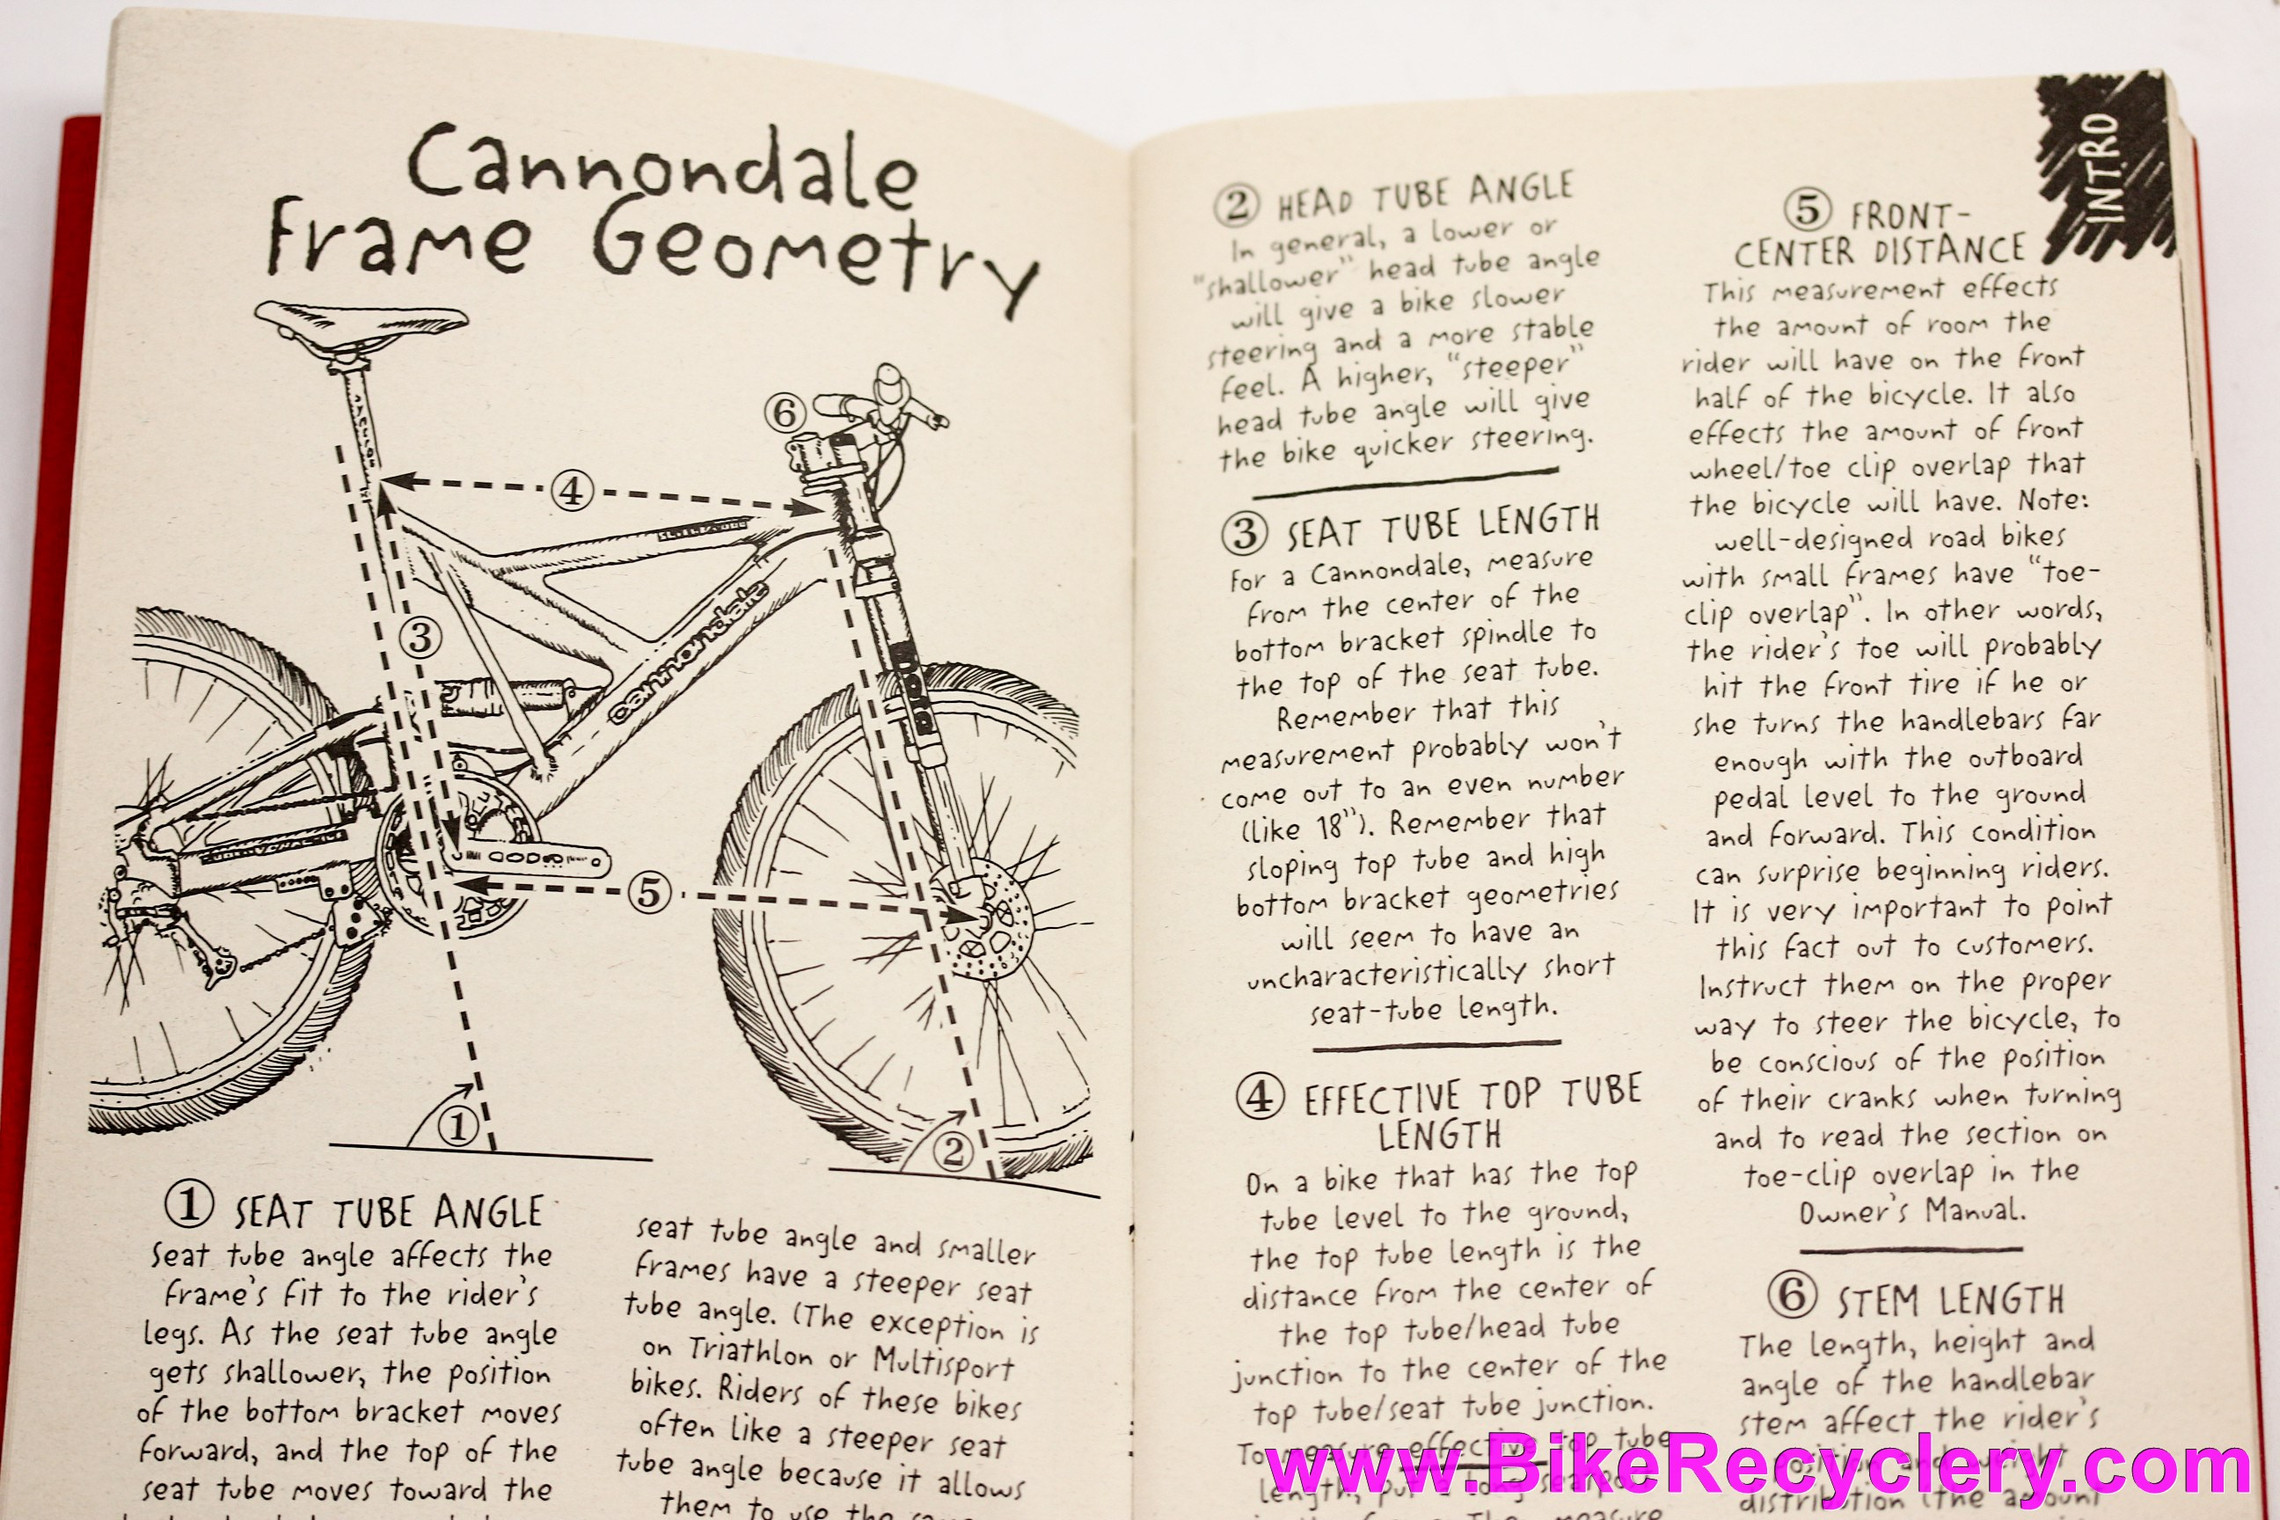 Cannondale
Frame Geometry
6
4
3
cannondale
moto
5
1
2
1 SEAT TUBE ANGLE
Seat tube angle affects the
frame's fit to the rider's
legs. As the seat tube angle
gets shallower, the position
of the bottom bracket moves
forward, and the top of the
seat tube moves toward the
seat tube angle and smaller
frames have a steeper seat
tube angle. (The exception is
on Triathlon or Multisport
bikes. Riders of these bikes
often like a steeper seat
tube angle because it allows
them to use the same
INTRO
2 HEAD TUBE ANGLE
In general, a lower or
"shallower" head tube angle
will give a bike slower
steering and a more stable
feel. A higher, "steeper"
head tube angle will give
the bike quicker steering.
3 SEAT TUBE LENGTH
For a Cannondale, measure
from the center of the
bottom bracket spindle to
the top of the seat tube.
Remember that this
measurement probably won't
come out to an even number
(like 18"). Remember that
sloping top tube and high
bottom bracket geometries
will seem to have an
uncharacteristically short
seat-tube length.
4 EFFECTIVE TOP TUBE
LENGTH
On a bike that has the top
tube level to the ground,
the top tube length is the
distance from the center of
the top tube/head tube
junction to the center of the
top tube/seat tube junction.
To measure effective top tube
length, put a long seatpost
measure
5 FRONT-
CENTER DISTANCE
This measurement effects
the amount of room the
rider will have on the front
half of the bicycle. It also
effects the amount of front
wheel/toe clip overlap that
the bicycle will have. Note:
well-designed road bikes
with small frames have "toe-
clip overlap". In other words,
the rider's toe will probably
hit the front tire if he or
she turns the handlebars far
enough with the outboard
pedal level to the ground
and forward. This condition
can surprise beginning riders.
It is very important to point
this fact out to customers.
Instruct them on the proper
way to steer the bicycle, to
be conscious of the position
of their cranks when turning
and to read the section on
toe-clip overlap in the
Owner's Manual.
6 STEM LENGTH
The length, height and
angle of the handlebar
stem affect the rider's
position and weight
distribution (the amount
www.BikeRecyclery.com